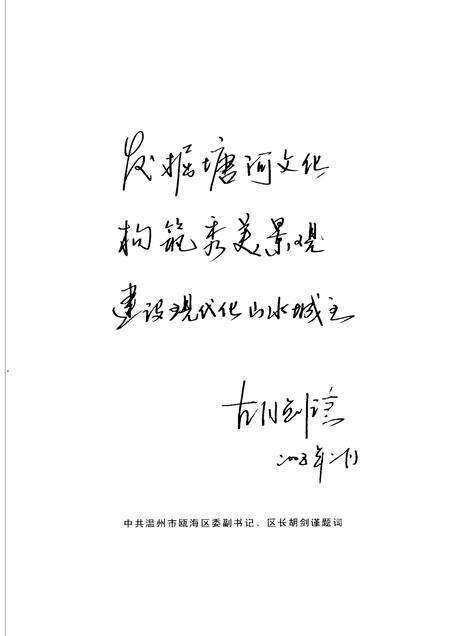 发掘塘河文化
构筑秀美景观
建设现代化山水城区
胡剑谨
二〇〇三年二月
中共温州市瓯海区委副书记、区长胡剑谨题词